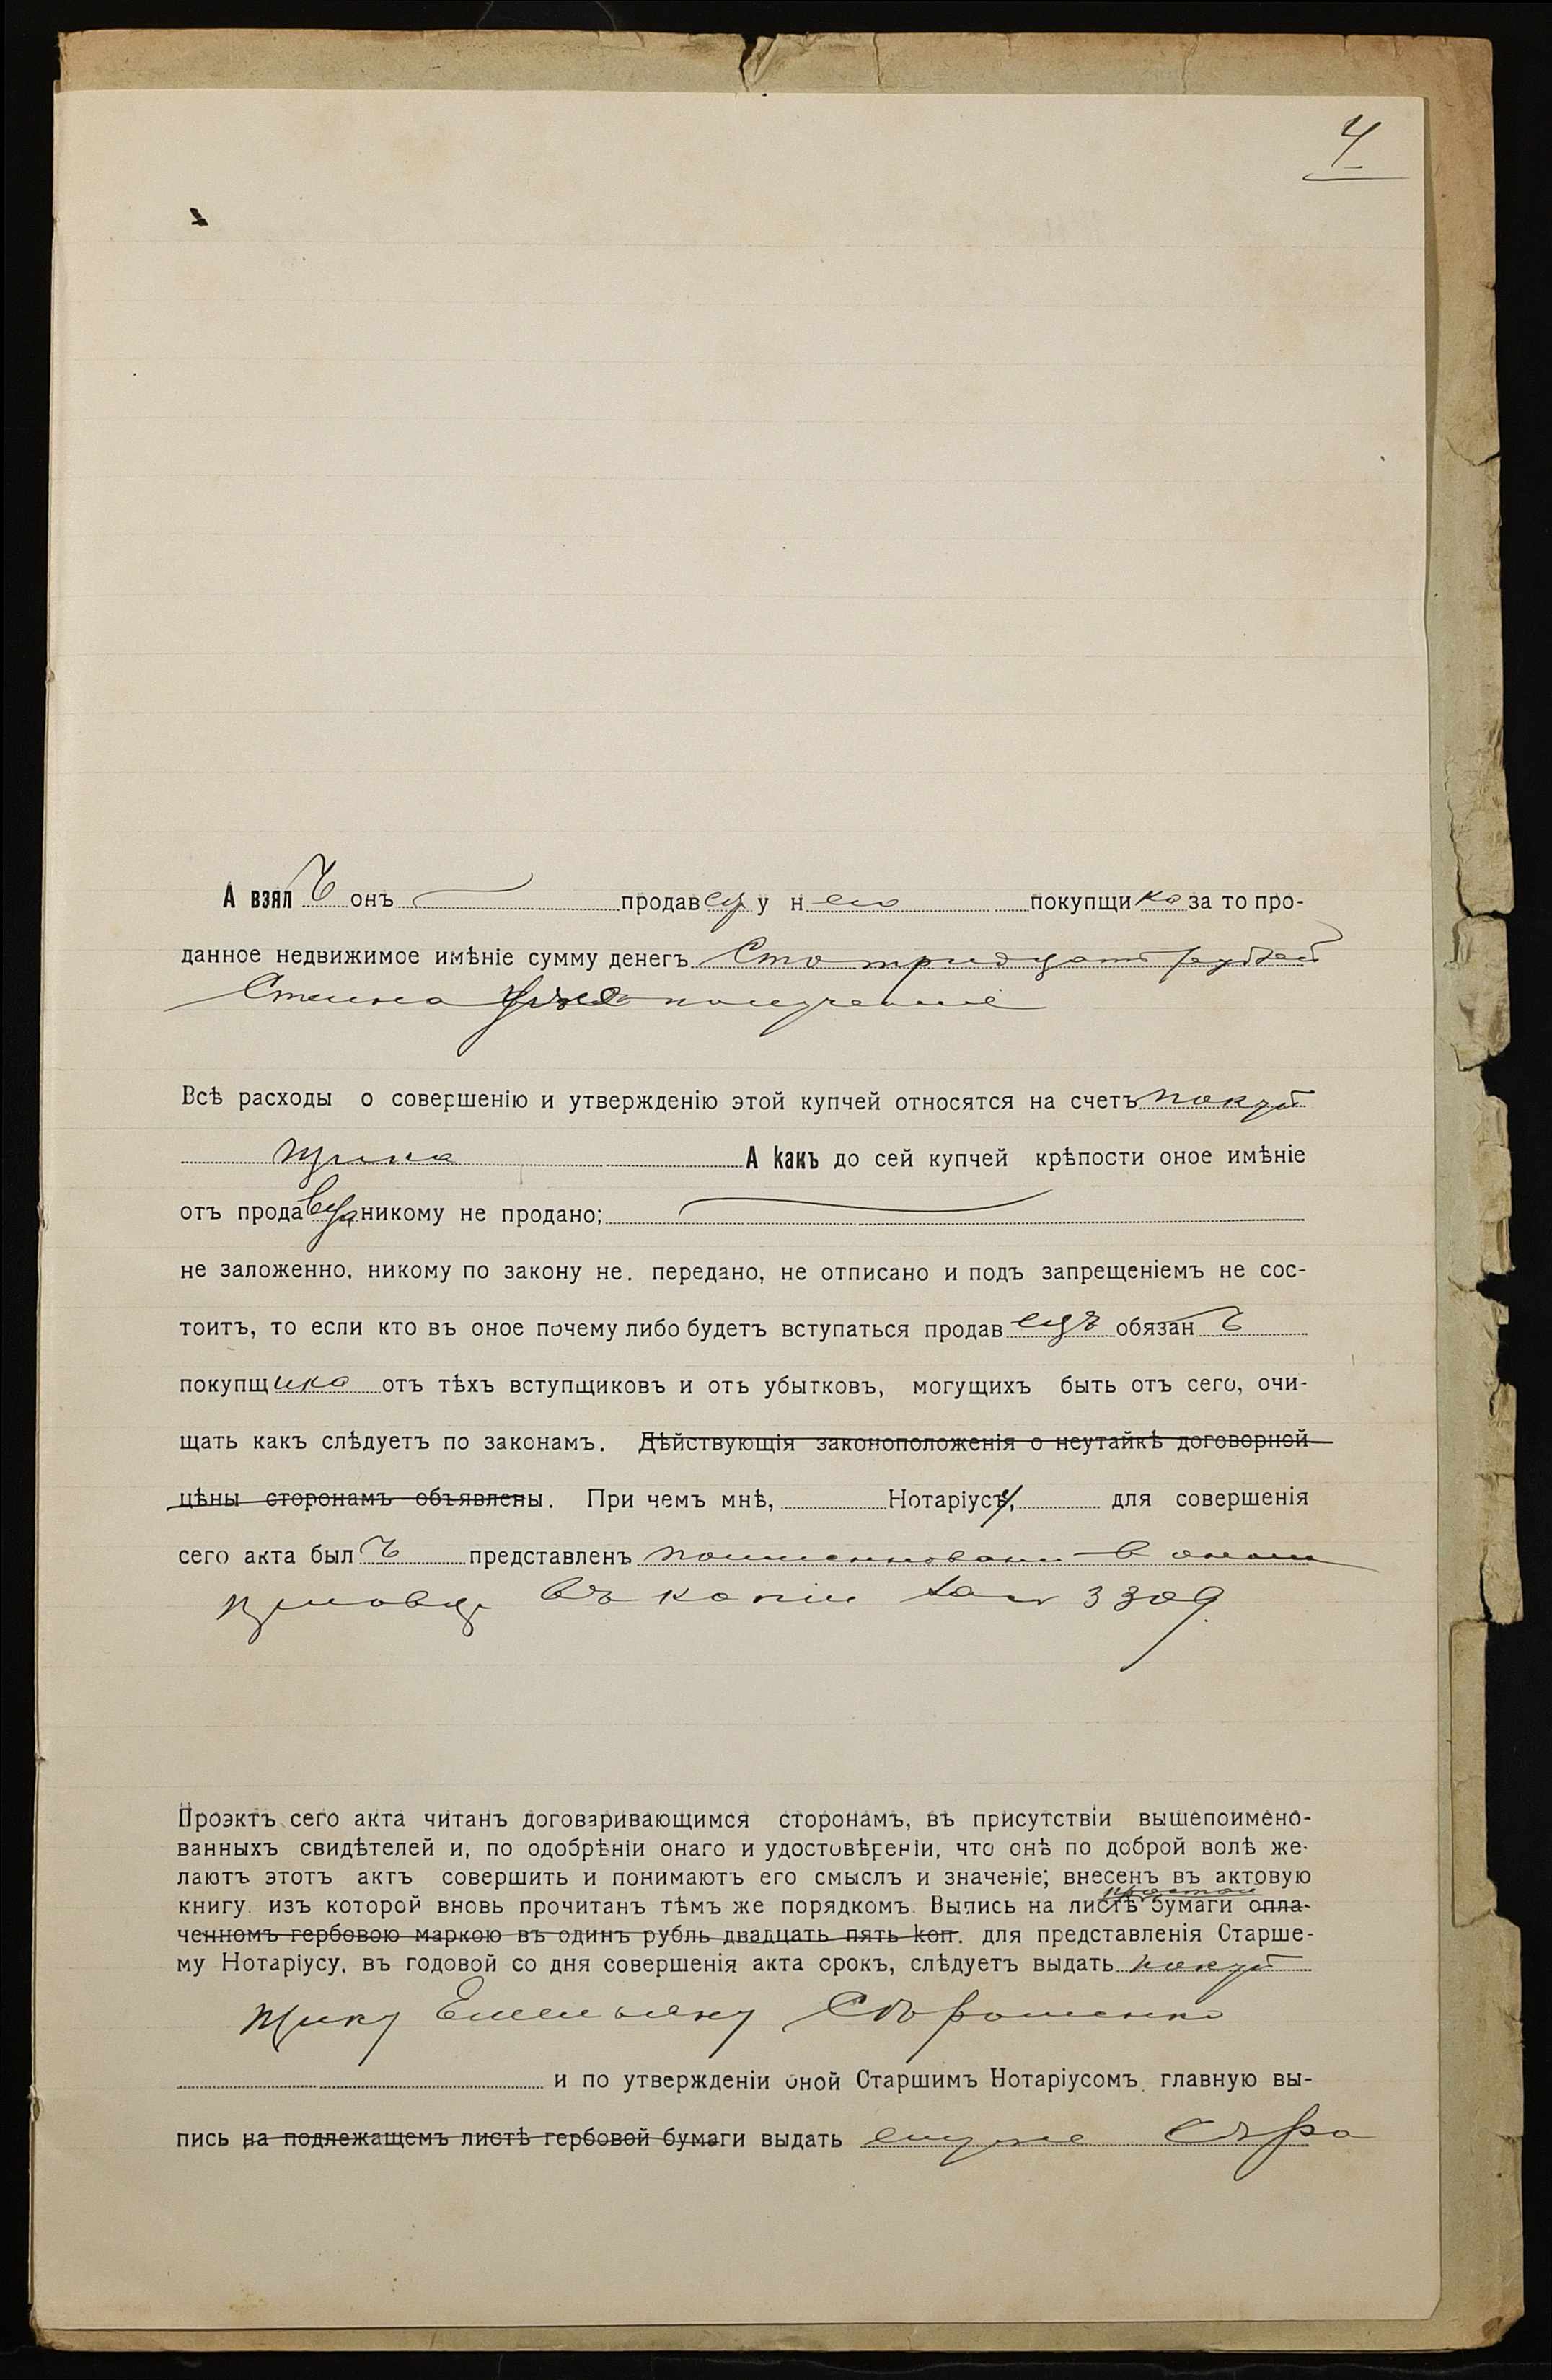 4
А взялъ онъ продавецъ у него покупщика за то про-
данное недвижимое имѣніе сумму денегъ Сто тридцать рублей
получение
Всѣ расходы о совершенію и утвержденію этой купчей относятся на счетъ покуп
щика А какъ до сей купчей крѣпости оное имѣніе
отъ продавца никому не продано;
не заложенно, никому по закону не. передано, не отписано и подъ запрещеніемъ не сос-
тоитъ, то если кто въ оное почему либо будетъ вступаться продавецъ обязанъ
покупщика отъ тѣхъ вступщиковъ и отъ убытковъ, могущихъ быть отъ сего, очи-
щать какъ слѣдуетъ по законамъ. Дѣйствующія законоположенія о неутайкѣ договорной
цѣны сторонамъ объявлены. При чемъ мнѣ, Нотаріусу, для совершенія
сего акта былъ представленъ
въ копіи 3309.
Проэктъ сего акта читанъ договаривающимся сторонамъ, въ присутствіи вышепоимено-
ванныхъ свидѣтелей и, по одобрѣніи онаго и удостовѣреніи, что онѣ по доброй волѣ же-
лаютъ этотъ актъ совершить и понимаютъ его смыслъ и значеніе; внесенъ въ актовую
книгу. изъ которой вновь прочитанъ тѣмъ же порядкомъ. Выпись на листѣ простой бумаги опла-
ченномъ гербовою маркою въ одинъ рубль двадцать пять коп. для представленія Старше-
му Нотаріусу, въ годовой со дня совершенія акта срокъ, слѣдуетъ выдать покуп
щику Емельяну
и по утвержденіи оной Старшимъ Нотаріусомъ главную вы-
пись на подлежащемъ листѣ гербовой бумаги выдать ему же